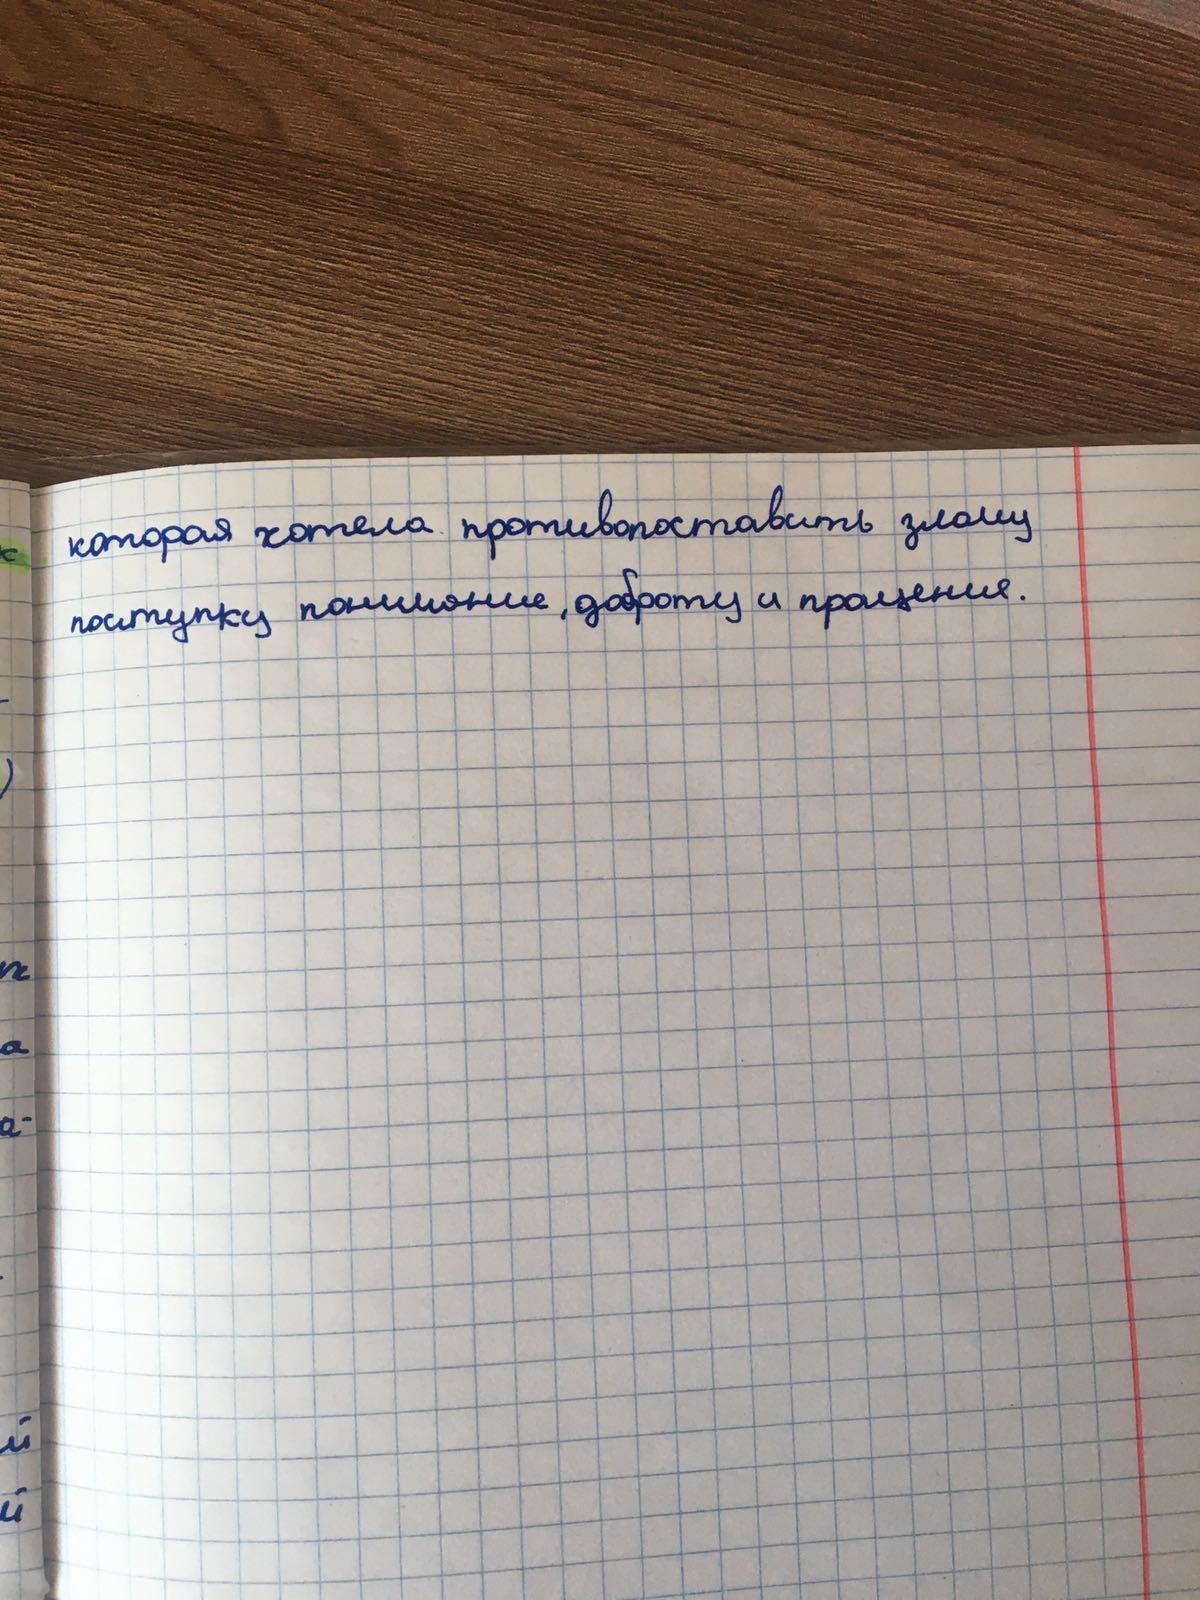 которая хотела противопоставить злому
поступку понимание, доброту и прощения.